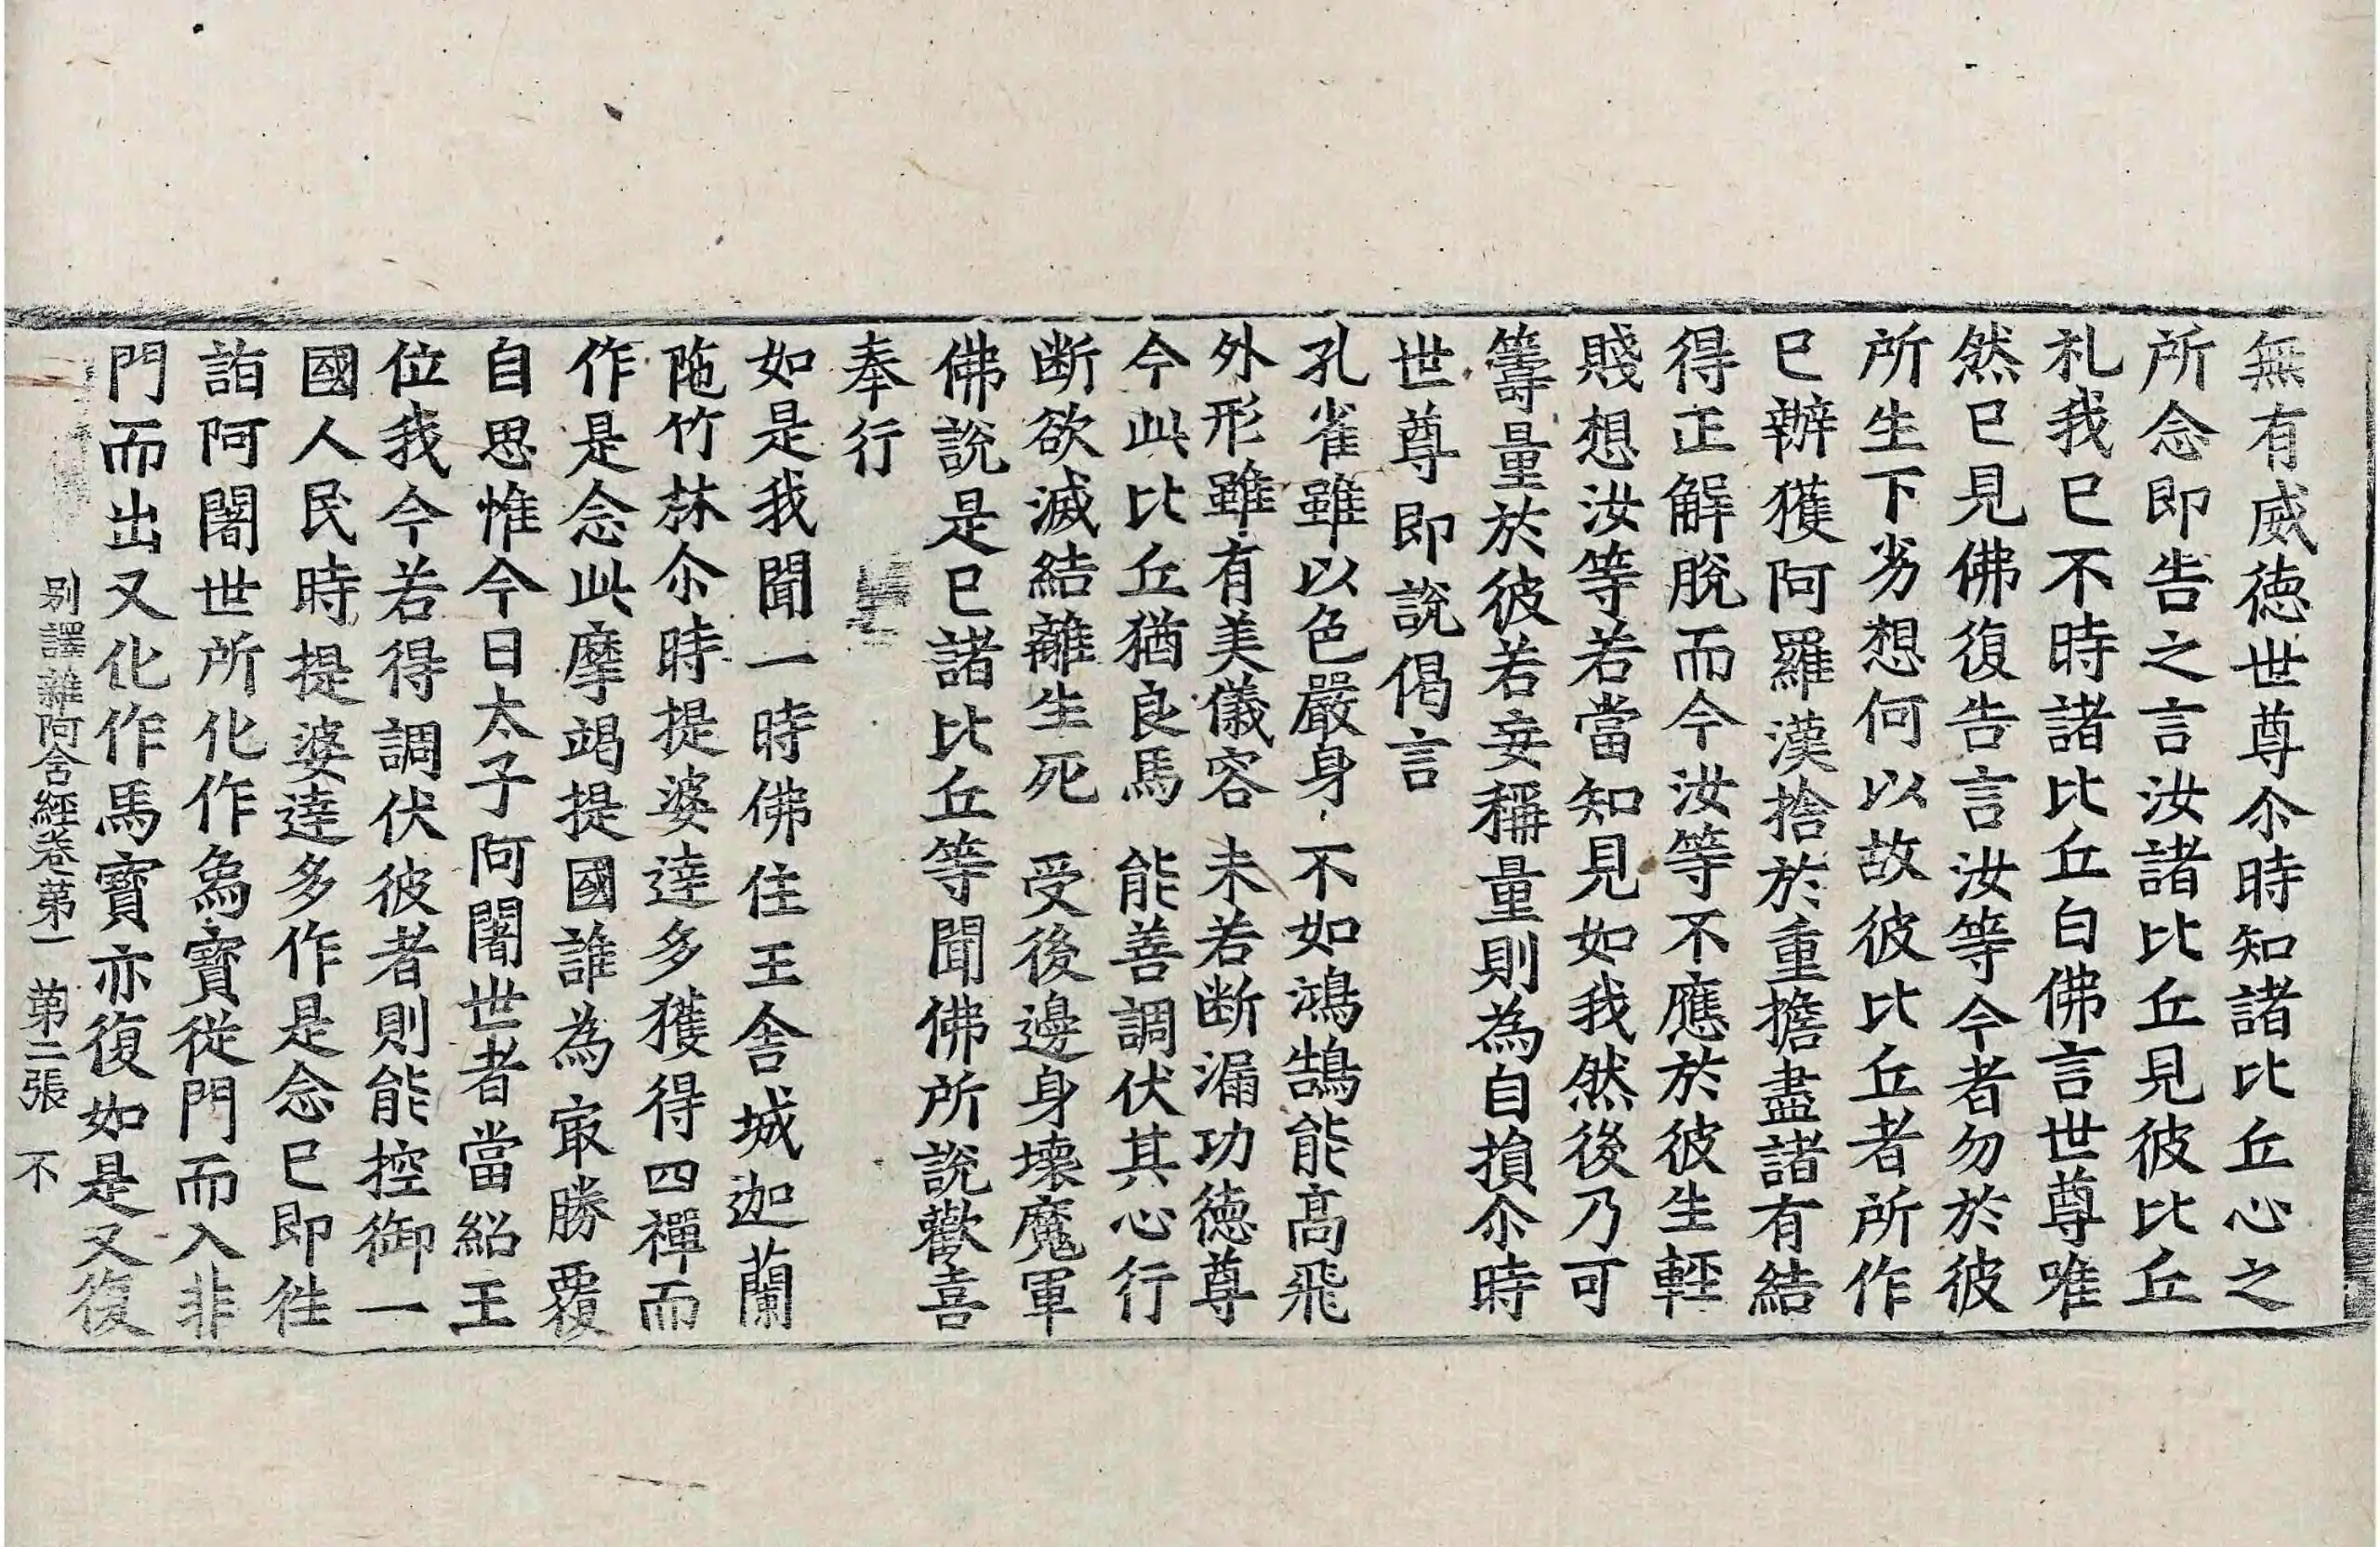 無有威徳世尊尒時知諸比丘心之
所念即告之言汝諸比丘見彼比丘
礼我已不時諸比丘白佛言世尊唯
然已見佛復告言汝等今者勿於彼
所生下劣想何以故彼比丘者所作
已辦獲阿羅漢捨於重擔盡諸有結
得正解脫而今汝等不應於彼生輕
賤想汝等若當知見如我然後乃可
籌量於彼若妄稱量則為自損尒時
世尊即說偈言
孔雀雖以色嚴身 不如鴻鵠能高飛
外形雖有美儀容 未若断漏功徳尊
今此比丘猶良馬 能善調伏其心行
断欲滅結離生死 受後邊身壊魔軍
佛說是已諸比丘等聞佛所說歡喜
奉行
如是我聞一時佛住王舍城迦蘭
陁竹林尒時提婆達多獲得四禪而
作是念此摩竭提國誰為冣勝覆
自思惟今日太子阿闍世者當紹王
位我今若得調伏彼者則能控御一
國人民時提婆達多作是念已即徃
詣阿闍世所化作象寶從門而入非
門而出又化作馬寶亦復如是又復
别譯雜阿含經卷第一 第二張 不